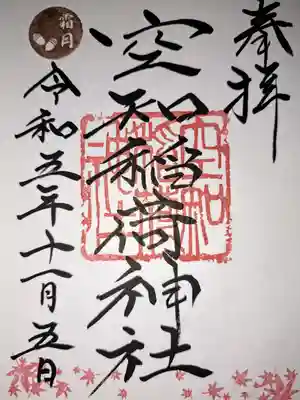 奉拝
空知稲荷神社
令和五年十一月五日
霜月